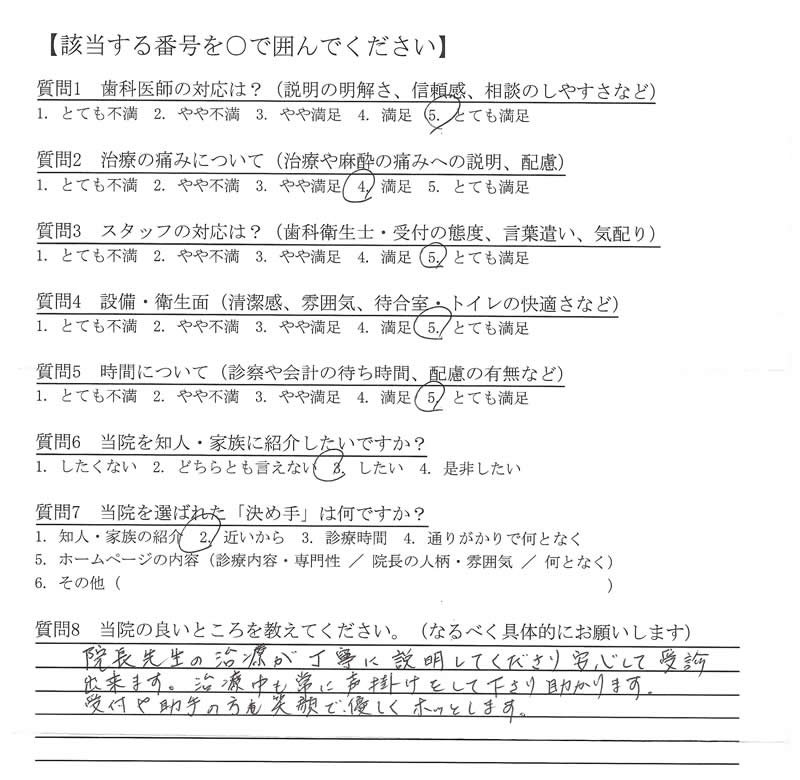 【該当する番号を〇で囲んでください】
質問1　歯科医師の対応は？（説明の明解さ、信頼感、相談のしやすさなど）
1. とても不満　2. やや不満　3. やや満足　4. 満足　5. とても満足
質問2　治療の痛みについて（治療や麻酔の痛みへの説明、配慮）
1. とても不満　2. やや不満　3. やや満足　4. 満足　5. とても満足
質問3　スタッフの対応は？（歯科衛生士・受付の態度、言葉遣い、気配り）
1. とても不満　2. やや不満　3. やや満足　4. 満足　5. とても満足
質問4　設備・衛生面（清潔感、雰囲気、待合室・トイレの快適さなど）
1. とても不満　2. やや不満　3. やや満足　4. 満足　5. とても満足
質問5　時間について（診察や会計の待ち時間、配慮の有無など）
1. とても不満　2. やや不満　3. やや満足　4. 満足　5. とても満足
質問6　当院を知人・家族に紹介したいですか？
1. したくない　2. どちらとも言えない　3. したい　4. 是非したい
質問7　当院を選ばれた「決め手」は何ですか？
1. 知人・家族の紹介　2. 近いから　3. 診療時間　4. 通りがかりで何となく
5. ホームページの内容（診療内容・専門性 ／ 院長の人柄・雰囲気 ／ 何となく）
6. その他（　　　　　　　　　　　　　　　　　　　　　）
質問8　当院の良いところを教えてください。（なるべく具体的にお願いします）
院長先生の治療が丁寧に説明してくださり安心して受診
出来ます。治療中も常に声掛けをして下さり助かります。
受付や助手の方も笑顔で優しくホッとします。